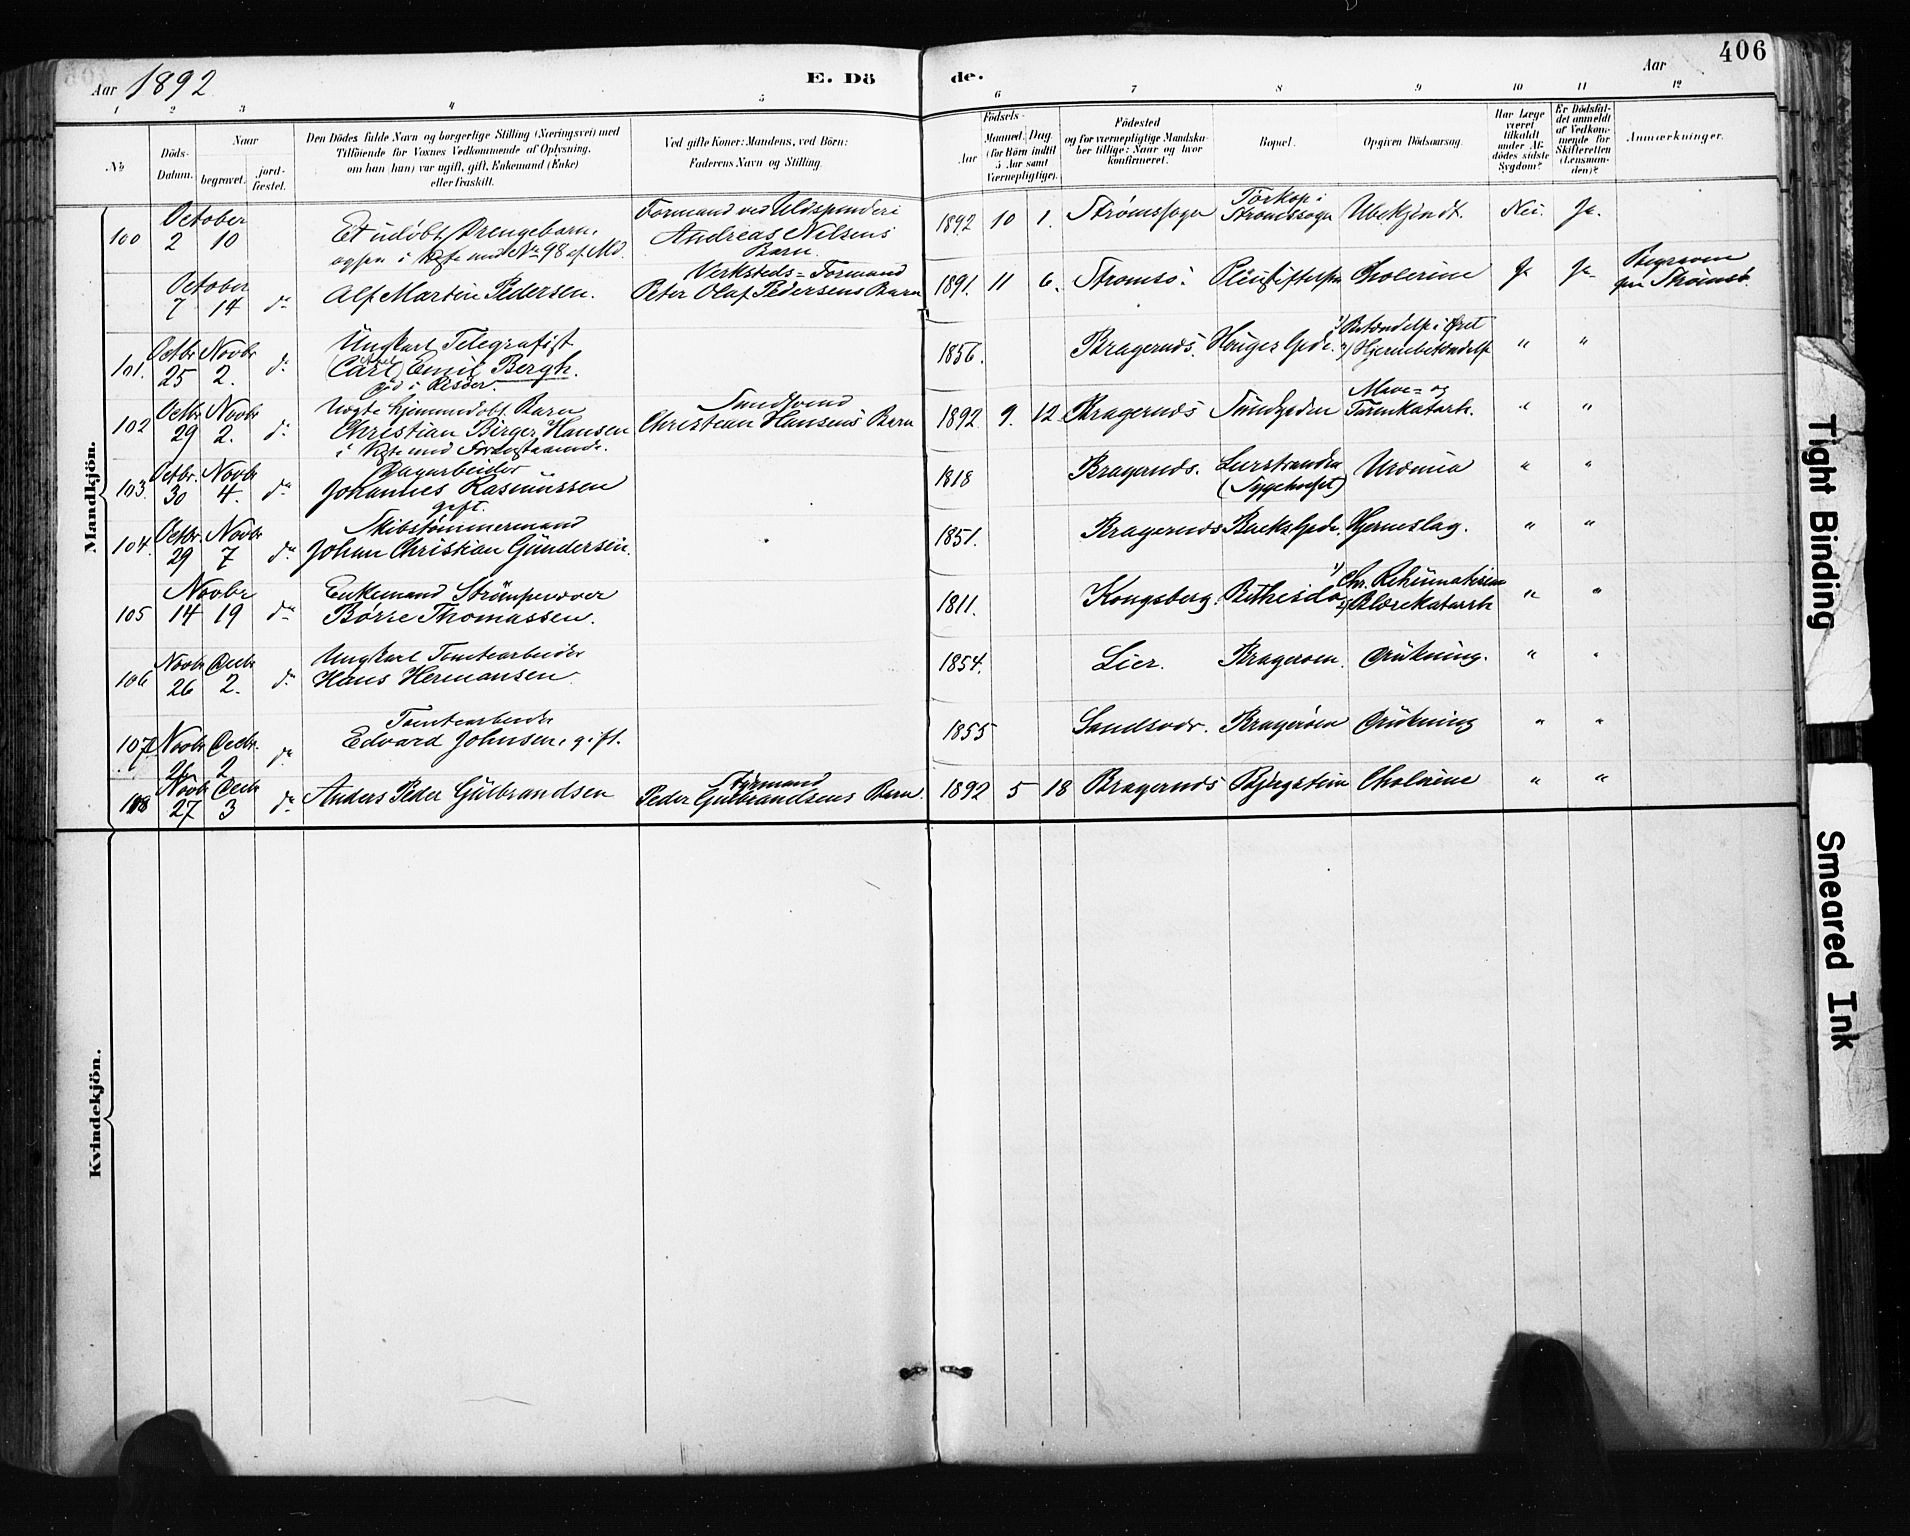 406
Aar 1892
E. Dö de.
Aar
1 2 3 4 5 6 7 8 9 10 11 12
No
Döds-Datum.
Naar
begravet.
jord-fæstet.
Den Dödes fulde Navn og borgerlige Stilling (Næringsvei) med
Tilföiende for Voxnes Vedkommende af Oplysning,
om han (hun) var ugift, gift, Enkemand (Enke)
eller fraskilt.
Ved gifte Koner: Mandens, ved Börn:
Faderens Navn og Stilling.
Födsels-
Aar
Maaned. Dag.
(for Börn indtil
5 Aar samt
Værnepligtige).
Födested
og for værnepligtige Mandska-
ber tillige: Naar og hvor
konfirmeret.
Bopæl.
Opgiven Dödsaarsag.
Har Læge
været
tilkaldt
under Af-
dödes sidste
Sygdom?
Er Dödsfal-
det anmeldt
af Vedkom-
mende for
Skifteretten
(Lensman-
den)?
Anmærkninger.
Mandkjön.
100 October 2 10
Et udøbt Drengebarn,
Formand ved Uldspinderi
Andreas Nilsens
Barn
1892 10 1. Strømssogn
Torkop i
Strømssogn
Ubekjendt. Nei. Ja.
October 7 14 do
Alf Martin Pedersen.
Verksteds-Formand
Peter Olaf Pedersens Barn
1891. 11 6. Strømsö. Cholerine Ja Ja
Begraven
paa Strömsö.
101. Octbr 25 Novbr 2. do
Ungkarl Telegrafist
Carl Emil Bergh.
fød i Risöer.
1856. Bragernæs. Hauges Gade.
1) Betændelse i Øret
2) Hjernebetændelse " "
102 Octbr 29 Novbr 2. do
Uægte hjemmedøbt Barn
Christian Birger Hansen
i Vægte med Foranstaaende.
Christian Hansens Barn
1892. 9. 12 Bragernæs
Mave- og
Tarmkatarh. " "
103. Octbr. 30 Novbr 4. do
Dagarbeider
Johannes Rasmussen
gift.
1818 Bragernæs. Leirstranden
(Sygehuset) Urœmia " "
104. Octbr. 29 Novbr 7 do
Skibstømmermand
Johan Christian Gundersen.
1851. Bragernæs Hjerneslag. " "
105 Novbr 14 19 do
Enkemand Strømpevæver
Børre Thomassen.
1811. Kongsberg. Bethesda
1) Chr. Rehumatisme
2) Blærekatarrh " "
106 Novbr 26 Decbr 2. do
Ungkarl Tomtearbeider
Hans Hermansen.
1854. Lier. Bragerøen. Drukning. " "
107 Novbr 26 Decbr. 2 do
Tomtearbeider
Edvard Johnsen, gift.
1855 Sandsvær. Bragerøen Drukning " "
108 Novbr 27 Decbr 3 do
Anders Peder Gulbrandsen
Styrmand
Peder Gulbrandsens Barn.
1892 5 18 Bragernæs Bjergstien Cholerine " "
Kvindekjön.
Tight Binding
Smeared Ink